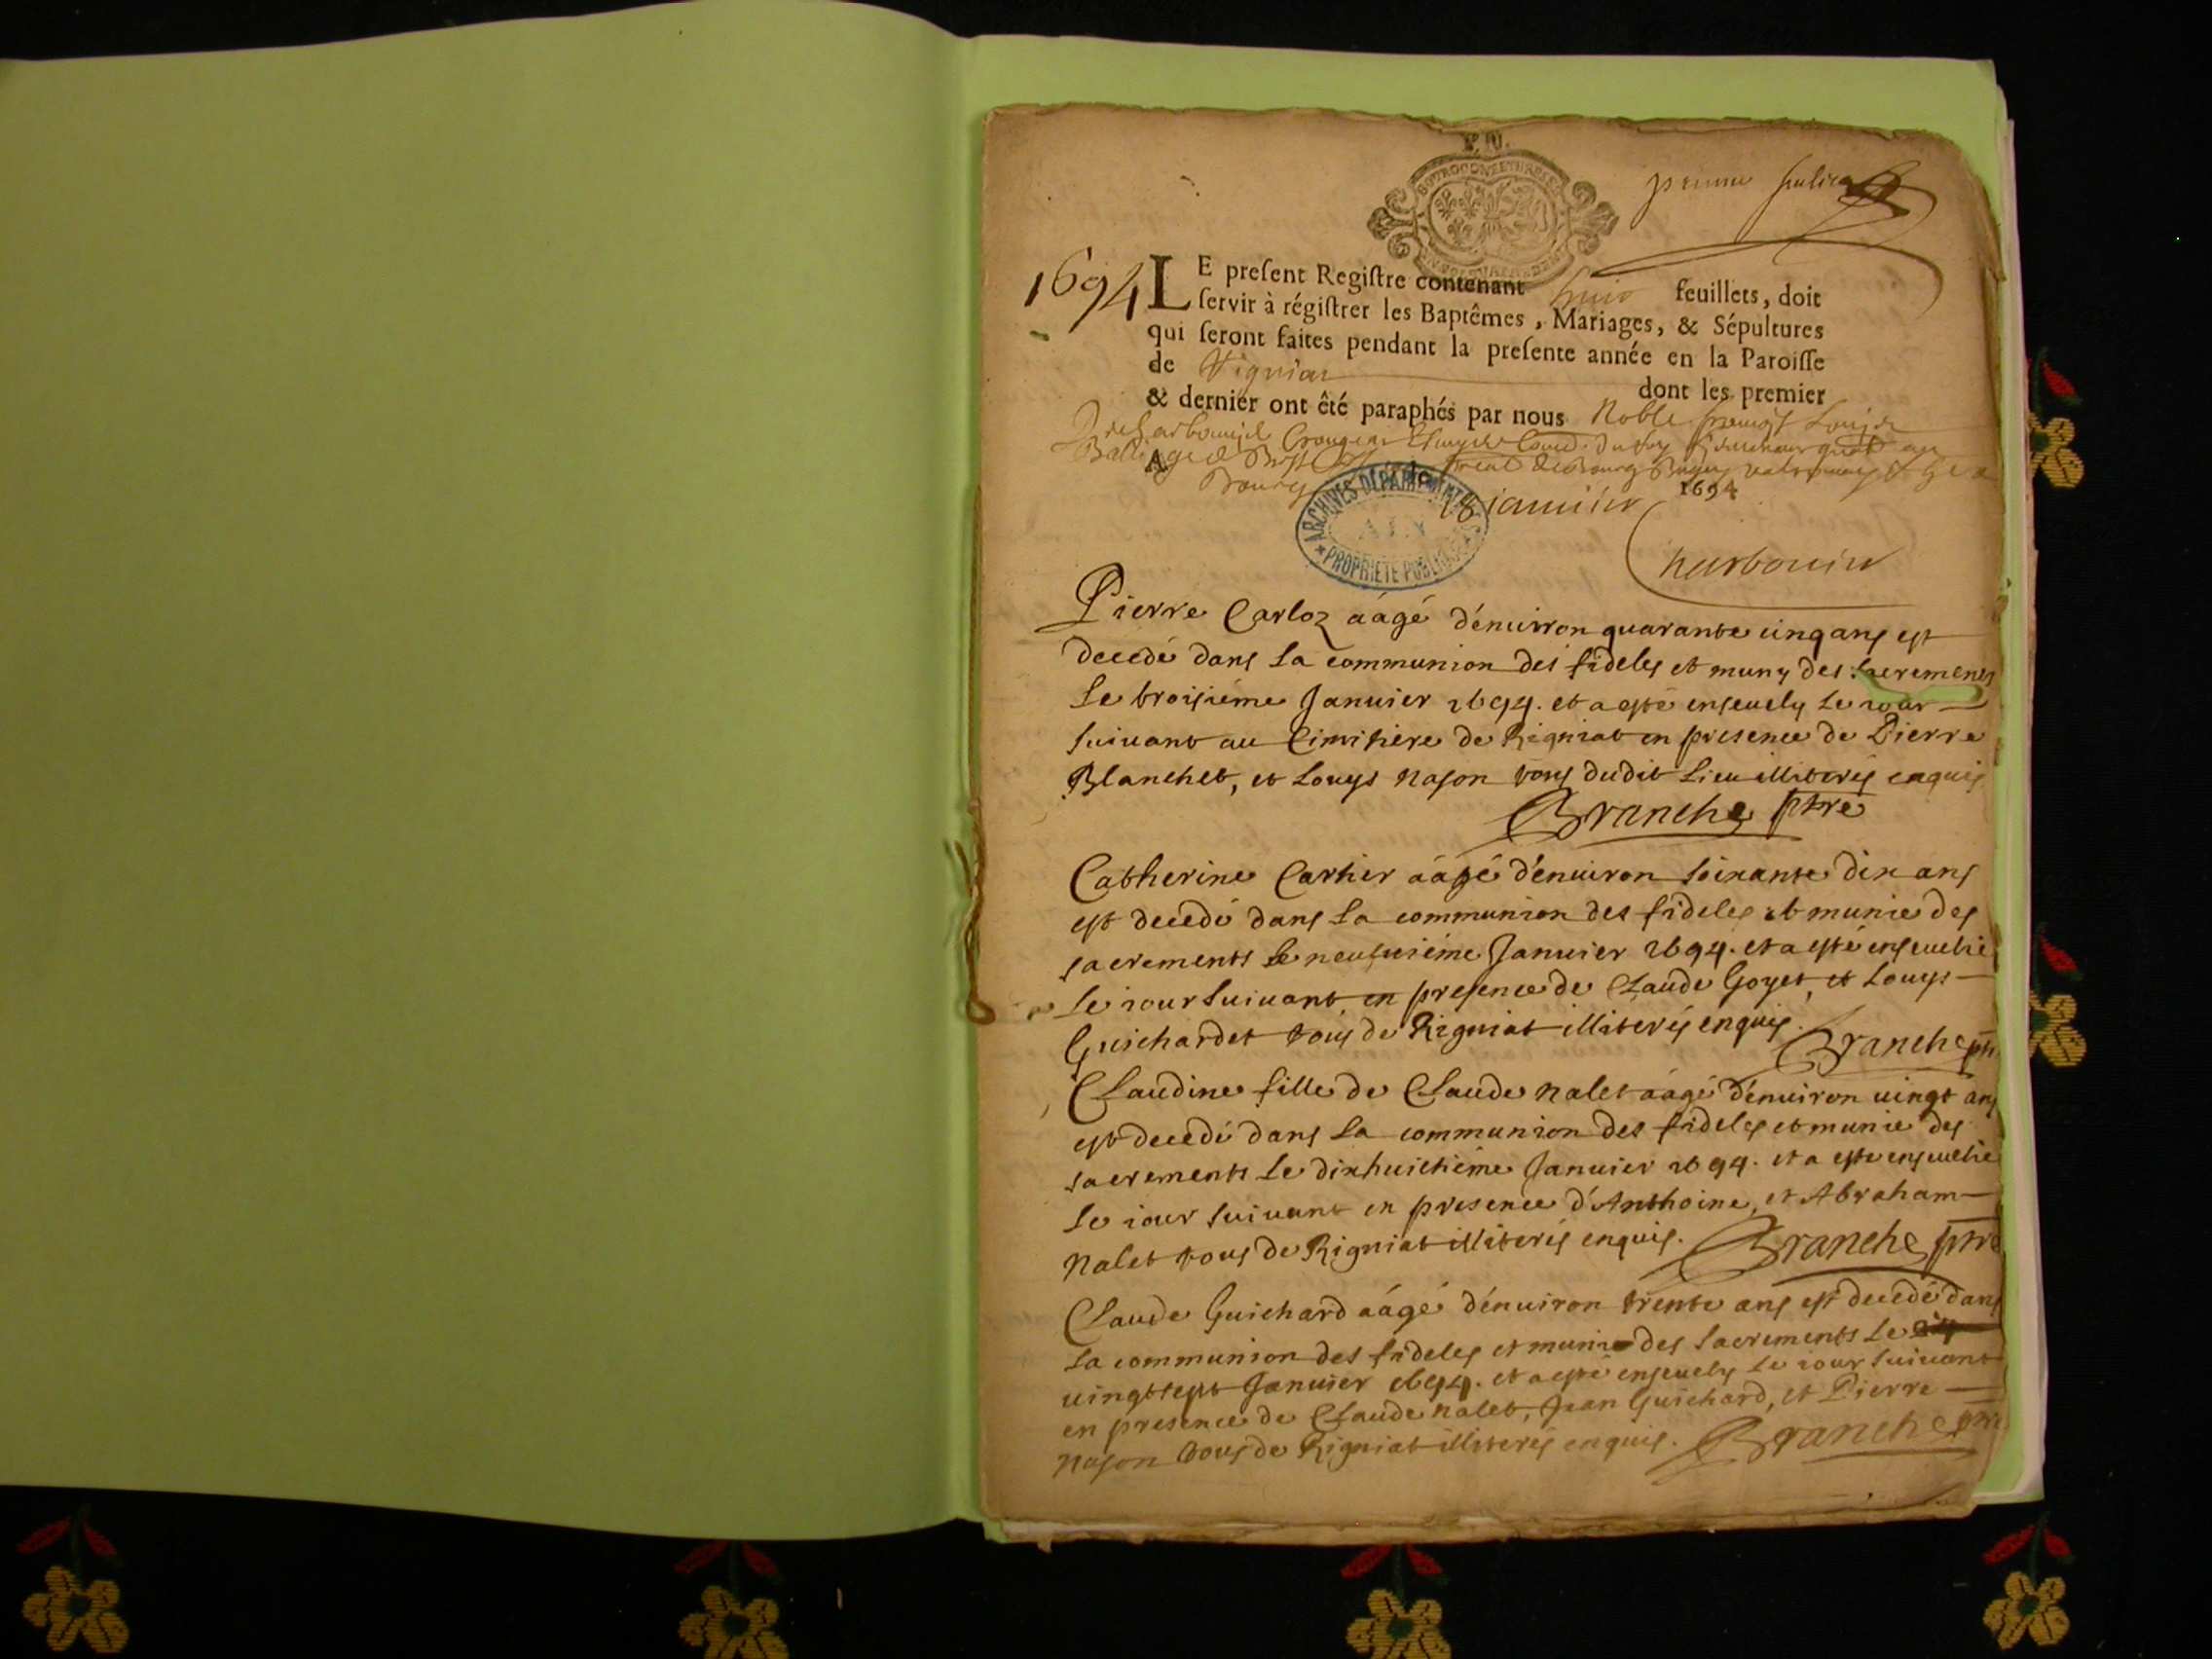 1694
LE preſent Regiſtre contenant feuillets, doit
ſervir à régiſtrer les Baptêmes, Mariages, & Sépultures
qui ſeront faites pendant la preſente année en la Paroiſſe
de dont les premier
& dernier ont été paraphés par nous Noble
18 ianuier 1694
ARCHIVES DEPARTEMENTALES
AIN
PROPRIETE PUBLIQUE
Pierre Carloz aágé d'enuiron quarante cinq ans est
decedé dans la communion des fideles et muny des sacrements
le troisiéme Januier 1694. et a esté enseuely le iour
suivant au Cimitiere de Rigniat en presence de Pierre
Blanchet, et Louys Nason tous dudit lieu illiterés enquis
Branche ptre
Catherine Cartier aágé d'enuiron soixante dix ans
est decedé dans la communion des fideles et munie des
sacrements le neufuiéme Januier 1694. et a esté enseuelie
le iour suivant en presence de Claude Goyet, et Louys
Guichardet tous de Rigniat illiterés enquis.
Branche ptre
Claudine fille de Claude Nalet aágé d'enuiron vingt ans
est decedé dans la communion des fideles et munie des
sacrements le dixhuictiéme Januier 1694. et a esté enseuelie
le iour suivant en presence d'Anthoine, et Abraham
Nalet tous de Rigniat illiterés enquis. Branche ptre
Claude Guichard aágé d'enuiron trente ans est decedé dans
la communion des fideles et munie des sacrements le
vingtsept Januier 1694. et a esté enseuely le iour suivant
en presence de Claude Nalet, Jean Guichard, et Pierre
Nason tous de Rigniat illiterés enquis. Branche ptre